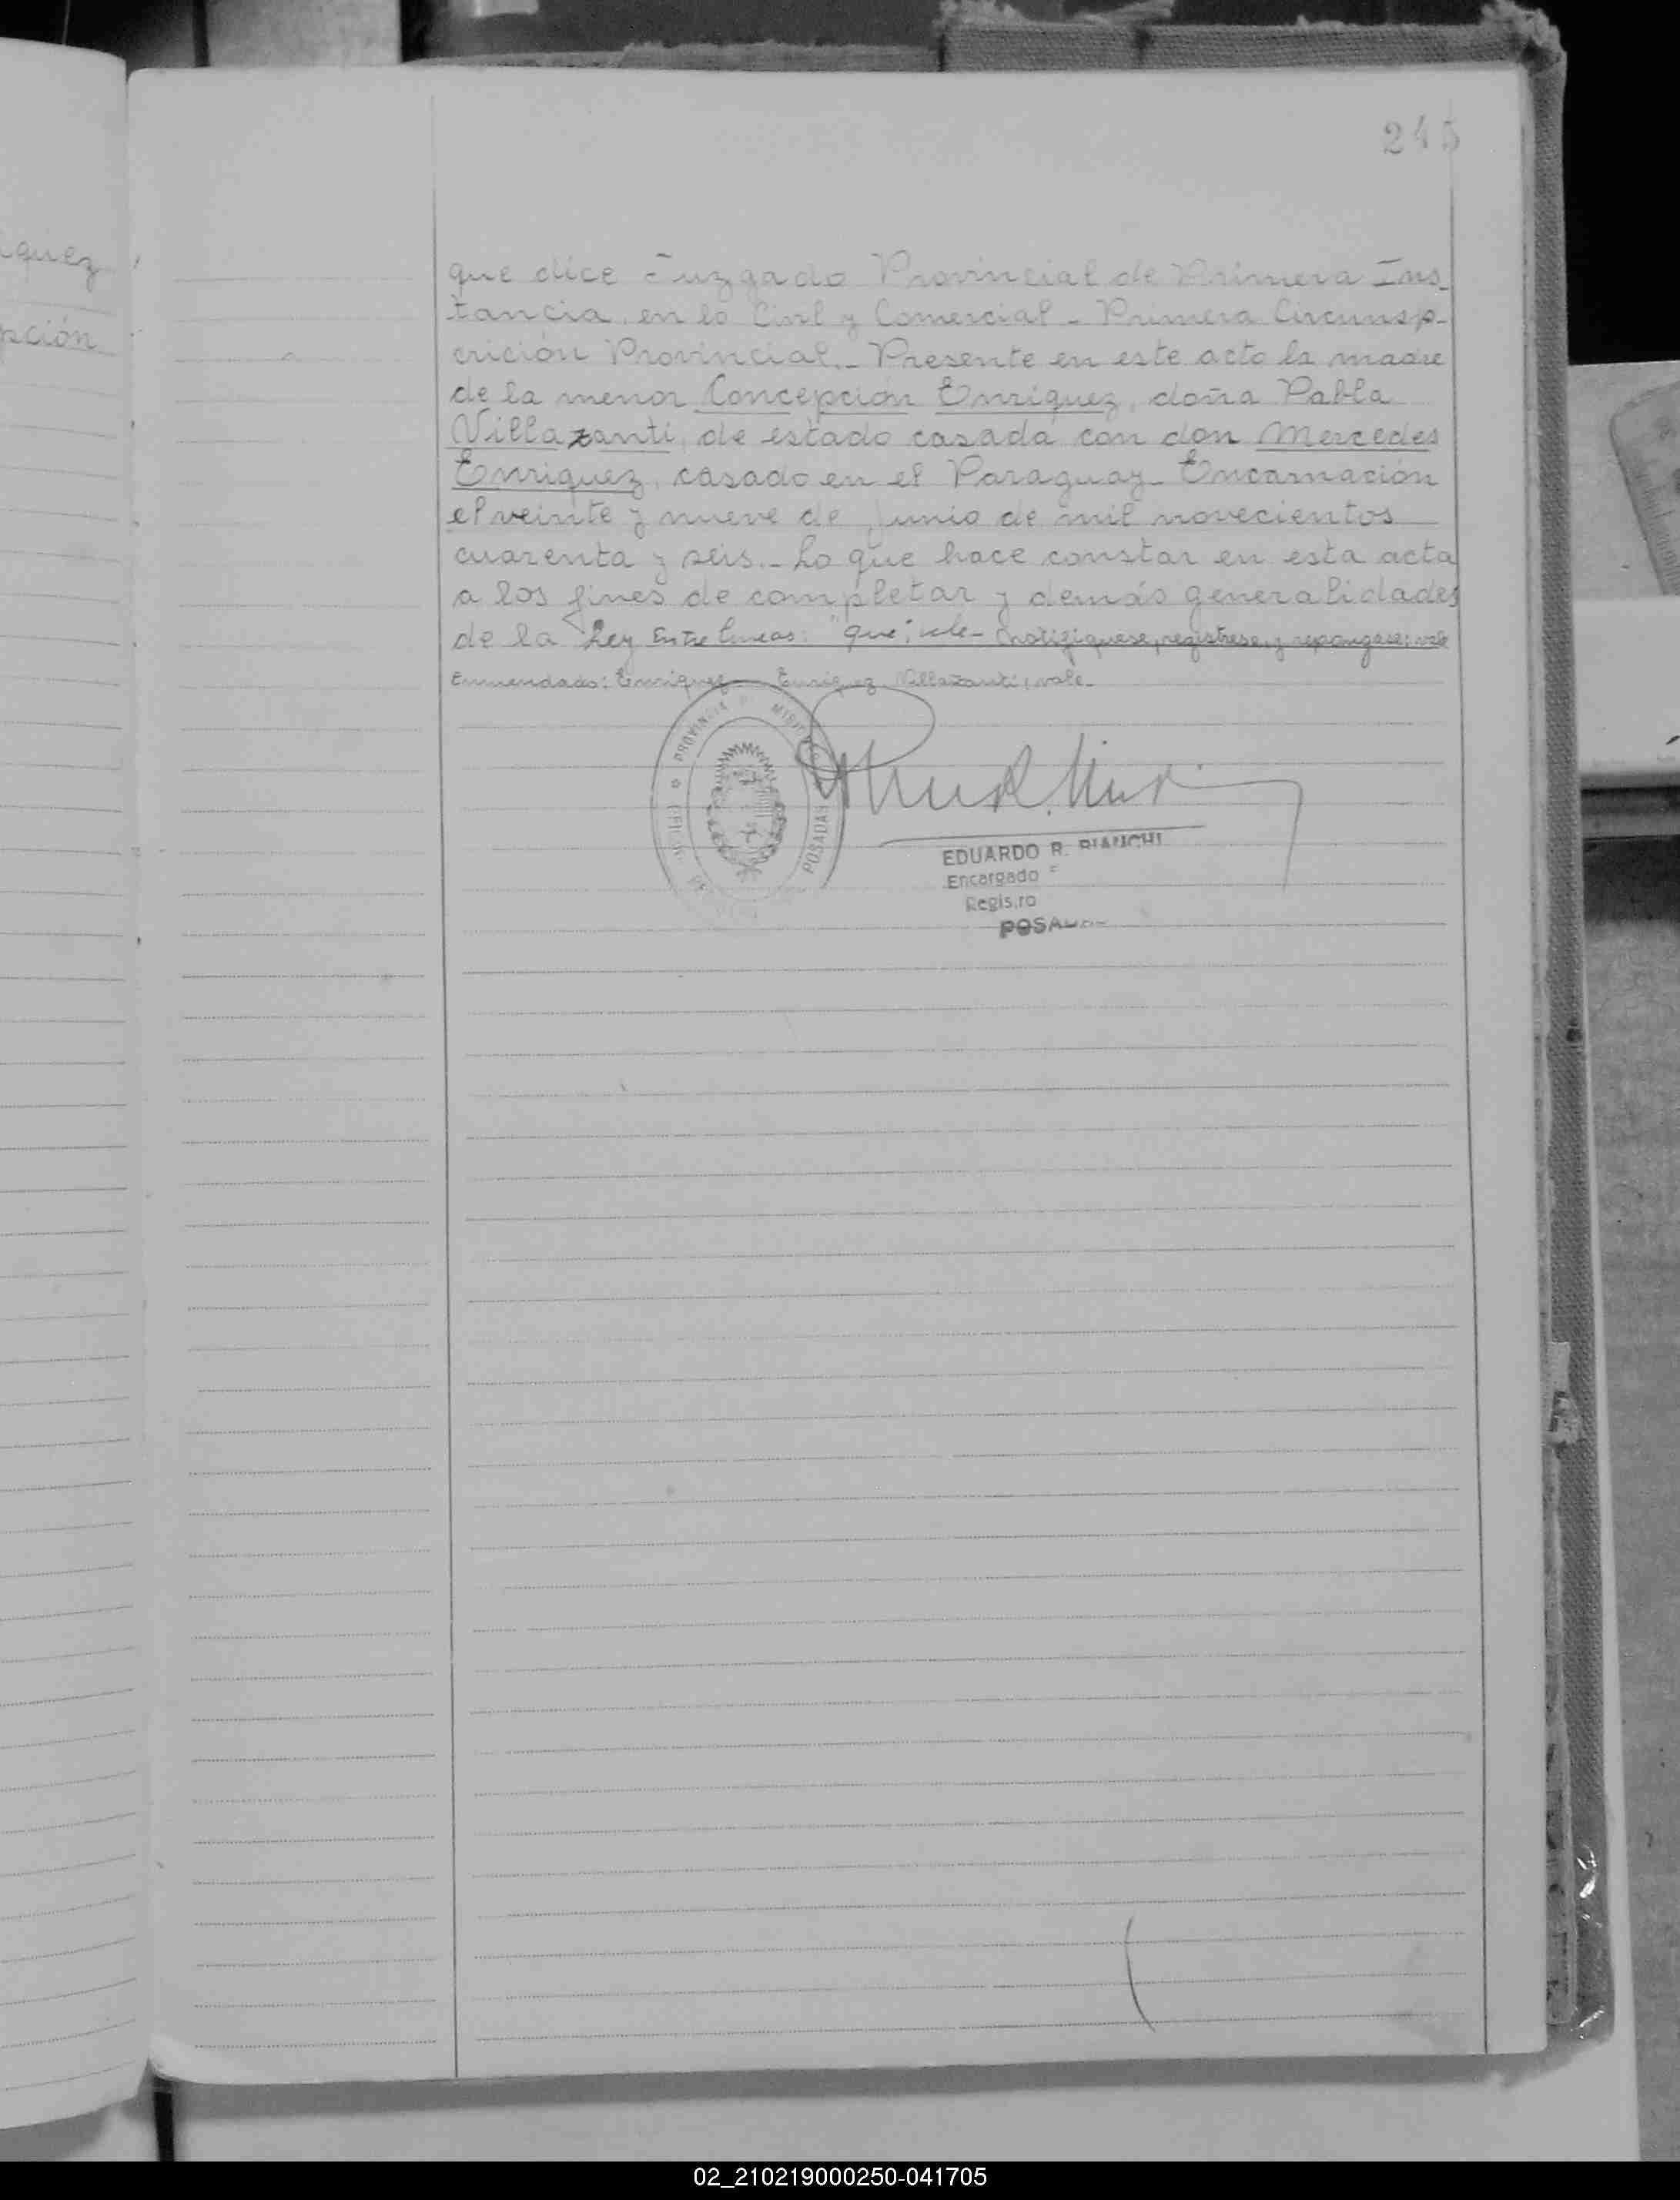 245
quez
pción
que dice Juzgado Provincial de Primera Ins_
tancia, en lo Civil y Comercial - Primera Circunsp-
crición Provincial.- Presente en este acto la madre
de la menor Concepción Enriquez, doña Pabla
Villazanti, de estado casada con don Mercedes
Enriquez, casado en el Paraguay - Encarnación
el veinte y nueve de Junio de mil novecientos
cuarenta y seis.- Lo que hace constar en esta acta
a los fines de completar y demás generalidades
de la Ley Entre lineas: "que", vale- notifiquese, registrese, y repongase; vale
Enmendado: Enriquez - Enriquez Villazanti, vale.-
PROVINCIA
POSADAS
EDUARDO R. BIANCHI
Encargado
Registro
POSADAS
02_210219000250-041705